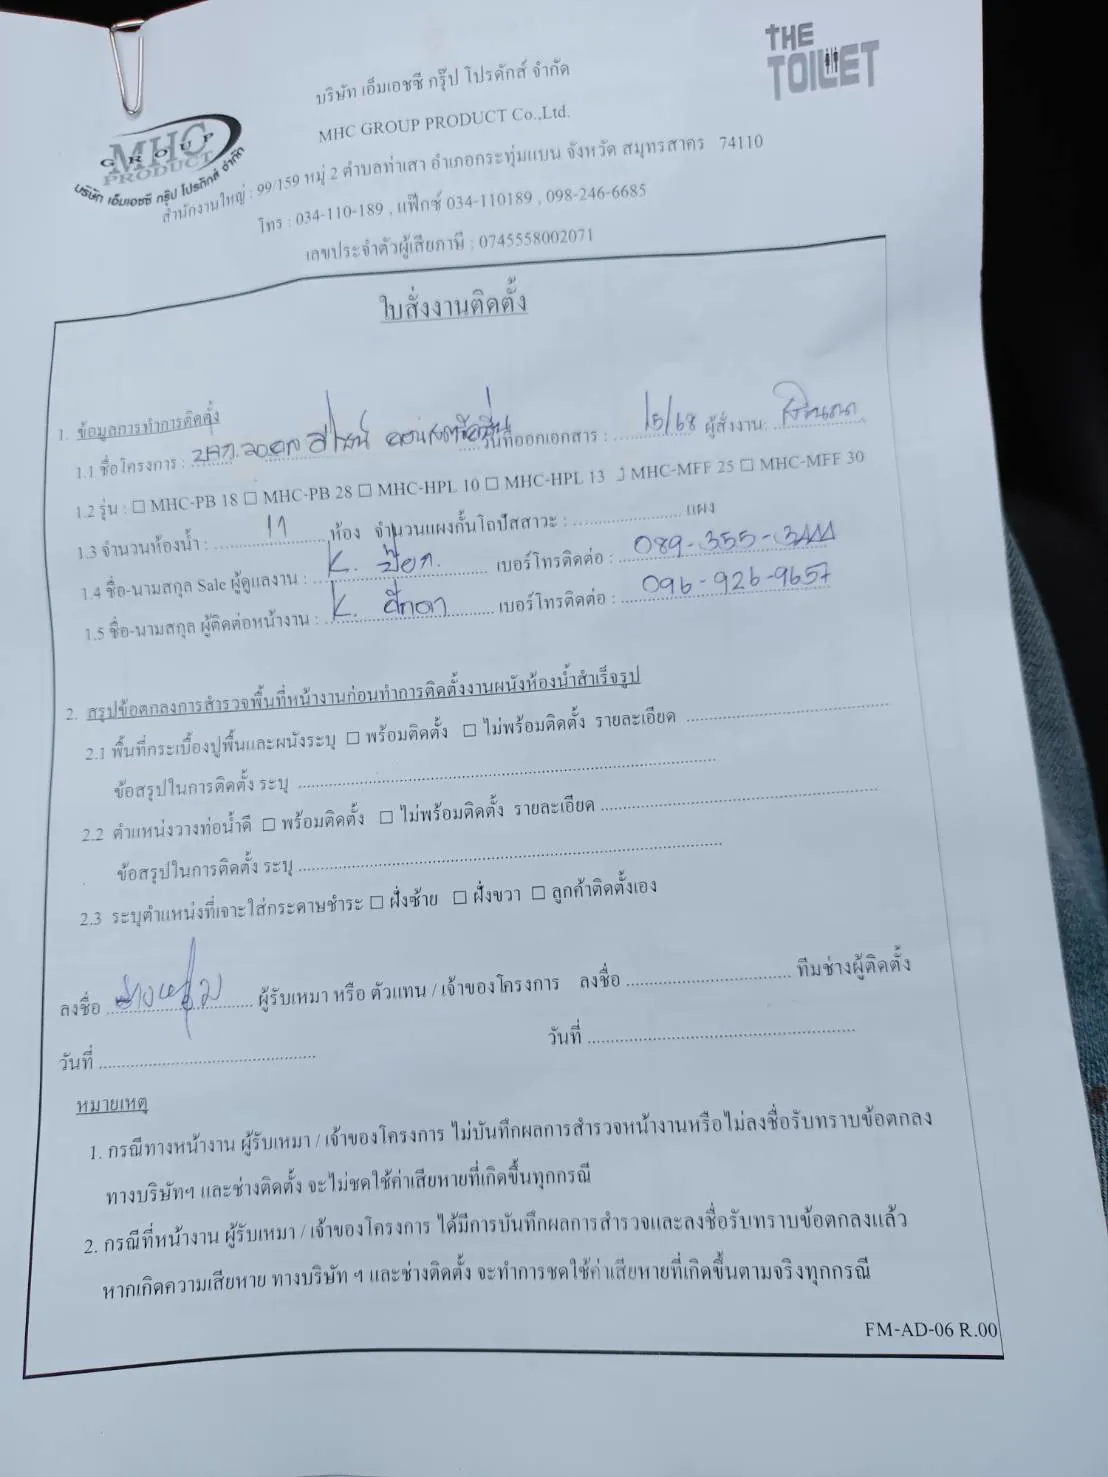 THE
TOILET
บริษัท เอ็มเอชซี กรุ๊ป โปรดักส์ จำกัด
MHC GROUP PRODUCT Co.,Ltd.
MHC
GROUP
PRODUCT
บริษัท เอ็มเอชซี กรุ๊ป โปรดักส์ จำกัด
สำนักงานใหญ่ : 99/159 หมู่ 2 ตำบลท่าเสา อำเภอกระทุ่มแบน จังหวัด สมุทรสาคร 74110
โทร : 034-110-189 , แฟ็กซ์ 034-110189 , 098-246-6685
เลขประจำตัวผู้เสียภาษี : 0745558002071
ใบสั่งงานติดตั้ง
1. ข้อมูลการทำการติดตั้ง
1.1 ชื่อโครงการ : วันที่ออกเอกสาร : /5/68 ผู้สั่งงาน:
1.2 รุ่น : ☐ MHC-PB 18 ☐ MHC-PB 28 ☐ MHC-HPL 10 ☐ MHC-HPL 13 ☐ MHC-MFF 25 ☐ MHC-MFF 30
1.3 จำนวนห้องน้ำ : 11 ห้อง จำนวนแผงกั้นโถปัสสาวะ : แผง
1.4 ชื่อ-นามสกุล Sale ผู้ดูแลงาน : K. เบอร์โทรติดต่อ : 089-355-
1.5 ชื่อ-นามสกุล ผู้ติดต่อหน้างาน : K. เบอร์โทรติดต่อ : 096-926-9657
2. สรุปข้อตกลงการสำรวจพื้นที่หน้างานก่อนทำการติดตั้งงานผนังห้องน้ำสำเร็จรูป
2.1 พื้นที่กระเบื้องปูพื้นและผนังระบุ ☐ พร้อมติดตั้ง ☐ ไม่พร้อมติดตั้ง รายละเอียด
ข้อสรุปในการติดตั้ง ระบุ
2.2 ตำแหน่งวางท่อน้ำดี ☐ พร้อมติดตั้ง ☐ ไม่พร้อมติดตั้ง รายละเอียด
ข้อสรุปในการติดตั้ง ระบุ
2.3 ระบุตำแหน่งที่เจาะใส่กระดาษชำระ ☐ ฝั่งซ้าย ☐ ฝั่งขวา ☐ ลูกค้าติดตั้งเอง
ลงชื่อ ผู้รับเหมา หรือ ตัวแทน / เจ้าของโครงการ ลงชื่อ ทีมช่างผู้ติดตั้ง
วันที่ วันที่
หมายเหตุ
1. กรณีทางหน้างาน ผู้รับเหมา / เจ้าของโครงการ ไม่บันทึกผลการสำรวจหน้างานหรือไม่ลงชื่อรับทราบข้อตกลง
ทางบริษัทฯ และช่างติดตั้ง จะไม่ชดใช้ค่าเสียหายที่เกิดขึ้นทุกกรณี
2. กรณีที่หน้างาน ผู้รับเหมา / เจ้าของโครงการ ได้มีการบันทึกผลการสำรวจและลงชื่อรับทราบข้อตกลงแล้ว
หากเกิดความเสียหาย ทางบริษัท ฯ และช่างติดตั้ง จะทำการชดใช้ค่าเสียหายที่เกิดขึ้นตามจริงทุกกรณี
FM-AD-06 R.00